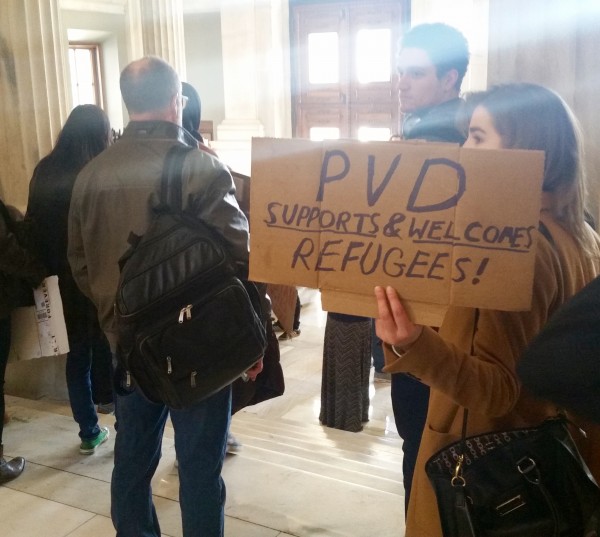 PVD
SUPPORTS & WELCOMES
REFUGEES!